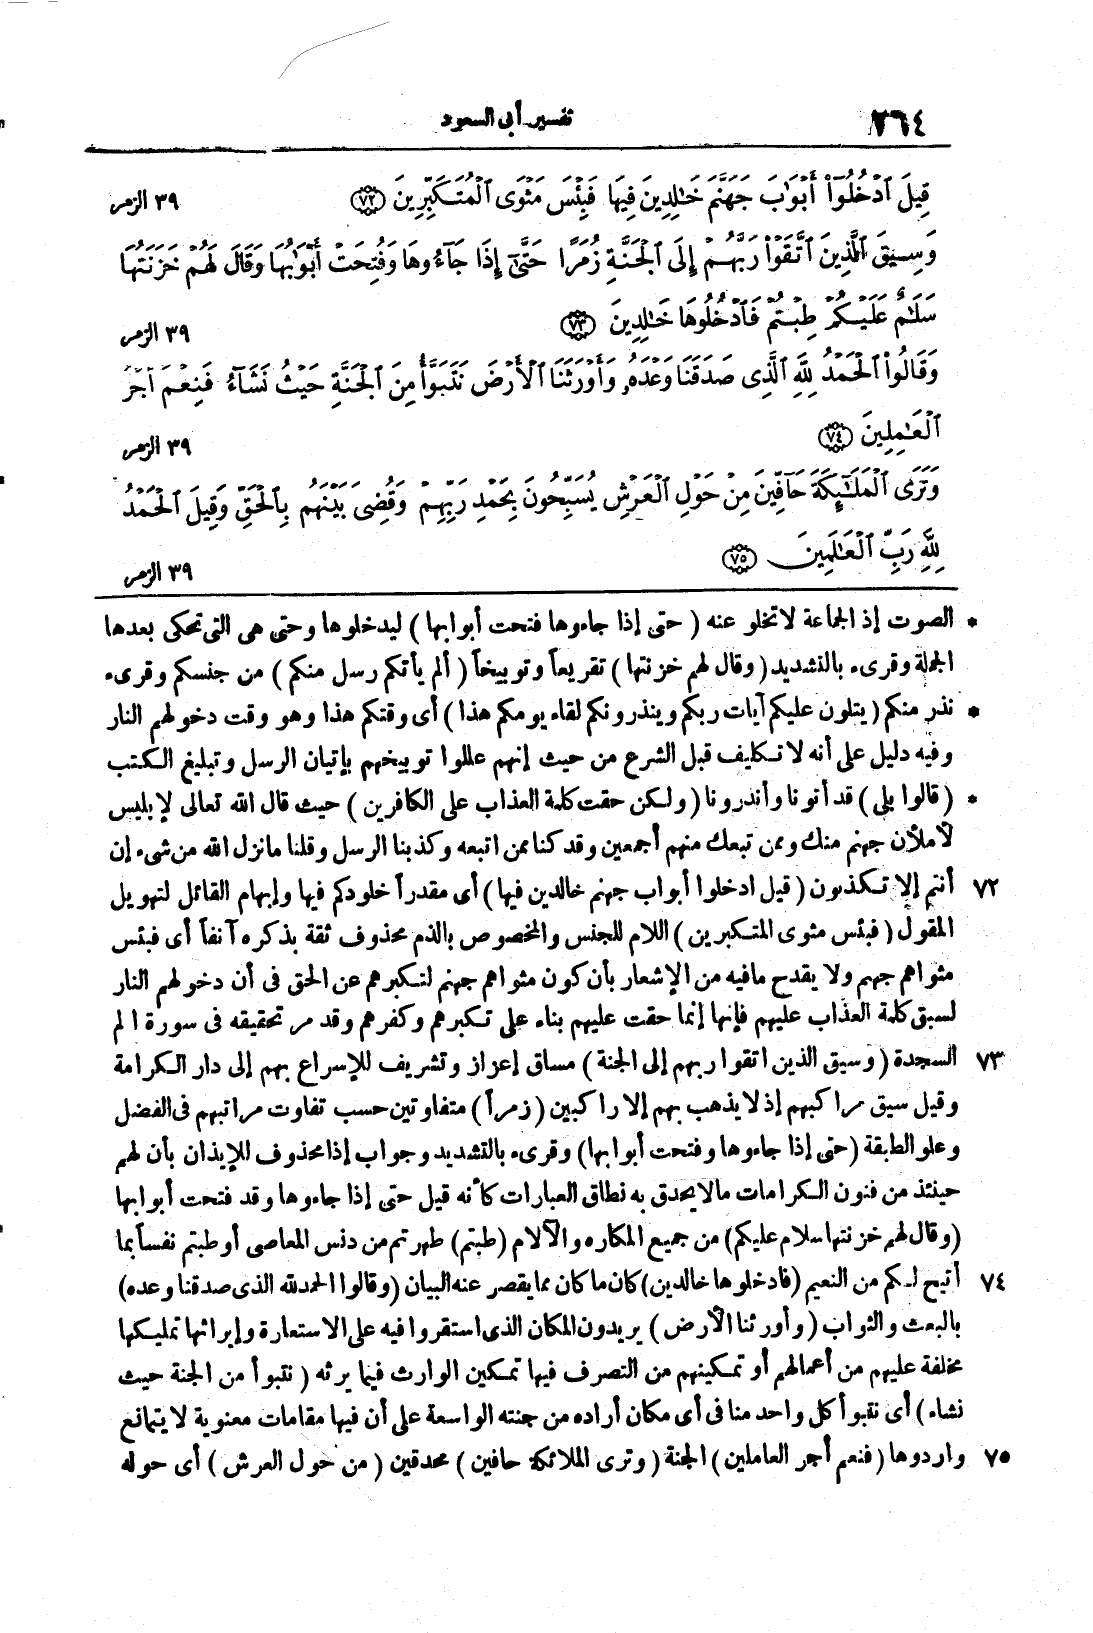 ٢٦٤ تفسير أبى السعود
قِيلَ ٱدْخُلُوٓا۟ أَبْوَٰبَ جَهَنَّمَ خَـٰلِدِينَ فِيهَا فَبِئْسَ مَثْوَى ٱلْمُتَكَبِّرِينَ ﴿٧٢﴾ ٣٩ الزمر
وَسِيقَ ٱلَّذِينَ ٱتَّقَوْا۟ رَبَّهُمْ إِلَى ٱلْجَنَّةِ زُمَرًا حَتَّىٰٓ إِذَا جَآءُوهَا وَفُتِحَتْ أَبْوَٰبُهَا وَقَالَ لَهُمْ خَزَنَتُهَا
سَلَـٰمٌ عَلَيْكُمْ طِبْتُمْ فَٱدْخُلُوهَا خَـٰلِدِينَ ﴿٧٣﴾ ٣٩ الزمر
وَقَالُوا۟ ٱلْحَمْدُ لِلَّهِ ٱلَّذِى صَدَقَنَا وَعْدَهُۥ وَأَوْرَثَنَا ٱلْأَرْضَ نَتَبَوَّأُ مِنَ ٱلْجَنَّةِ حَيْثُ نَشَآءُ فَنِعْمَ أَجْرُ
ٱلْعَـٰمِلِينَ ﴿٧٤﴾ ٣٩ الزمر
وَتَرَى ٱلْمَلَـٰٓئِكَةَ حَآفِّينَ مِنْ حَوْلِ ٱلْعَرْشِ يُسَبِّحُونَ بِحَمْدِ رَبِّهِمْ وَقُضِىَ بَيْنَهُم بِٱلْحَقِّ وَقِيلَ ٱلْحَمْدُ
لِلَّهِ رَبِّ ٱلْعَـٰلَمِينَ ﴿٧٥﴾ ٣٩ الزمر
* الصوت إذ الجماعة لا تخلو عنه (حتى إذا جاءوها فتحت أبوابها) ليدخلوها وحتى هى التى تحكى بعدها
الجملة وقرىء بالتشديد (وقال لهم خزنتها) تقريعاً وتوبيخاً (ألم يأتكم رسل منكم) من جنسكم وقرىء
* نذر منكم (يتلون عليكم آيات ربكم وينذرونكم لقاء يومكم هذا) أى وقتكم هذا وهو وقت دخولهم النار
وفيه دليل على أنه لا تكليف قبل الشرع من حيث إنهم عللوا توبيخهم بإتيان الرسل وتبليغ الكتب
* (قالوا بلى) قد أتونا وأنذرونا (ولكن حقت كلمة العذاب على الكافرين) حيث قال الله تعالى لإبليس
لأملأن جهنم منك وممن تبعك منهم أجمعين وقد كنا ممن اتبعه وكذبنا الرسل وقلنا ما نزل الله من شىء إن
٧٢ أنتم إلا تكذبون (قيل ادخلوا أبواب جهنم خالدين فيها) أى مقدراً خلودكم فيها وإبهام القائل لتهويل
المقول (فبئس مثوى المتكبرين) اللام للجنس والمخصوص بالذم محذوف ثقة بذكره آنفاً أى فبئس
مثواهم جهنم ولا يقدح ما فيه من الإشعار بأن كون مثواهم جهنم لتكبرهم عن الحق فى أن دخولهم النار
لسبق كلمة العذاب عليهم فإنها إنما حقت عليهم بناء على تكبرهم وكفرهم وقد مر تحقيقه فى سورة الم
٧٣ السجدة (وسيق الذين اتقوا ربهم إلى الجنة) مساق إعزاز وتشريف للإسراع بهم إلى دار الكرامة
وقيل سيق مراكبهم إذ لا يذهب بهم إلا راكبين (زمراً) متفاوتين حسب تفاوت مراتبهم فى الفضل
وعلو الطبقة (حتى إذا جاءوها وفتحت أبوابها) وقرىء بالتشديد وجواب إذا محذوف للإيذان بأن لهم
حينئذ من فنون الكرامات ما لا يحدق به نطاق العبارات كأنه قيل حتى إذا جاءوها وقد فتحت أبوابها
(وقال لهم خزنتها سلام عليكم) من جميع المكاره والآلام (طبتم) طهرتم من دنس المعاصى أو طبتم نفساً بما
٧٤ أتيح لكم من النعيم (فادخلوها خالدين) كان ما كان مما يقصر عنه البيان (وقالوا الحمدلله الذى صدقنا وعده)
بالبعث والثواب (وأورثنا الأرض) يريدون المكان الذى استقروا فيه على الاستعارة وإيراثها تمليكها
مخلفة عليهم من أعمالهم أو تمكينهم من التصرف فيها تمكين الوارث فيما يرثه (نتبوأ من الجنة حيث
نشاء) أى نتبوأ كل واحد منا فى أى مكان أراده من جنته الواسعة على أن فيها مقامات معنوية لا يتمانع
٧٥ واردوها (فنعم أجر العاملين) الجنة (وترى الملائكة حافين) محدقين (من حول العرش) أى حوله